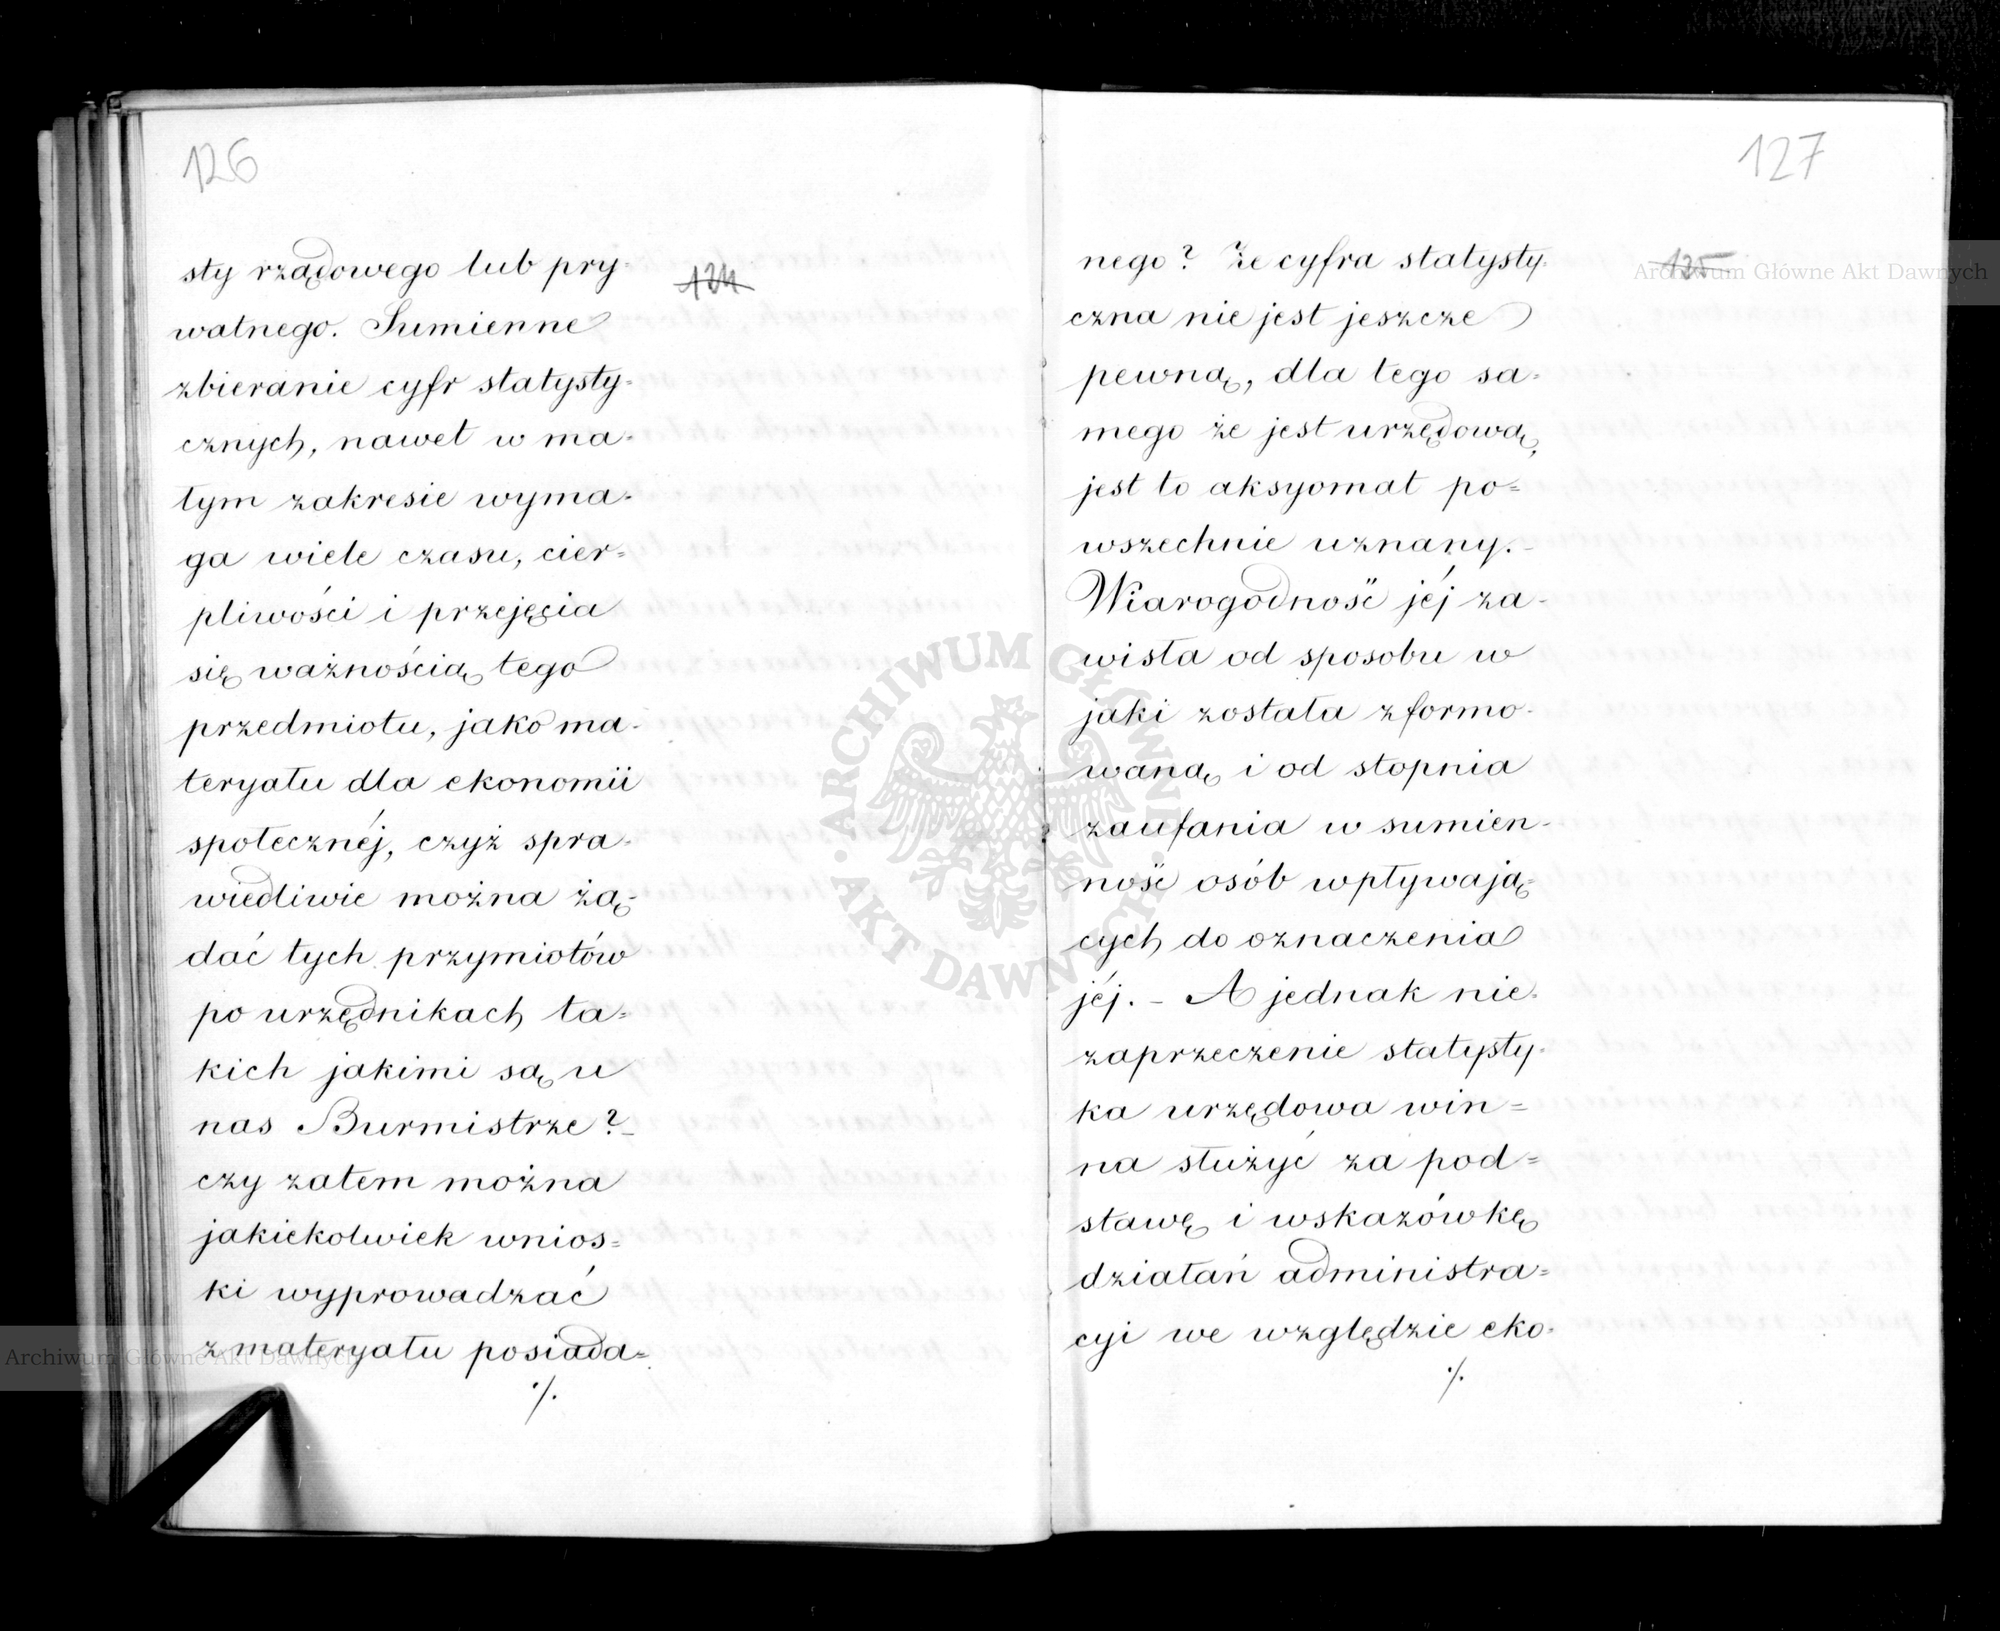 126
sty rządowego lub pry-
124
watnego. Sumienne
zbieranie cyfr statysty-
cznych, nawet w ma-
łym zakresie wyma-
ga wiele czasu, cier=
pliwości i przejęcia
się ważnością tego
przedmiotu, jako ma-
teryału dla ekonomii
społecznéj, czyż spra-
wiedliwie można żą-
dać tych przymiotów
po urzędnikach ta=
kich jakimi są u
nas Burmistrze? –
czy zatem można
jakiekolwiek wnios=
ki wyprowadzać
z materyału posiada=
./.
127
nego? Że cyfra statysty-
125
czna nie jest jeszcze
pewną, dla tego sa-
mego że jest urzędową,
jest to aksyomat po=
wszechnie uznany. –
Wiarogodność jéj za-
wisła od sposobu w
jaki została zformo-
waną i od stopnia
zaufania w sumien-
ność osób wpływają-
cych do oznaczenia
jéj. – A jednak nie-
zaprzeczenie statysty-
ka urzędowa win=
na służyć za pod=
stawę i wskazówkę
działań administra=
cyi we względzie eko-
./.
ARCHIWUM GŁÓWNE AKT DAWNYCH
Archiwum Główne Akt Dawnych
Archiwum Główne Akt Dawnych